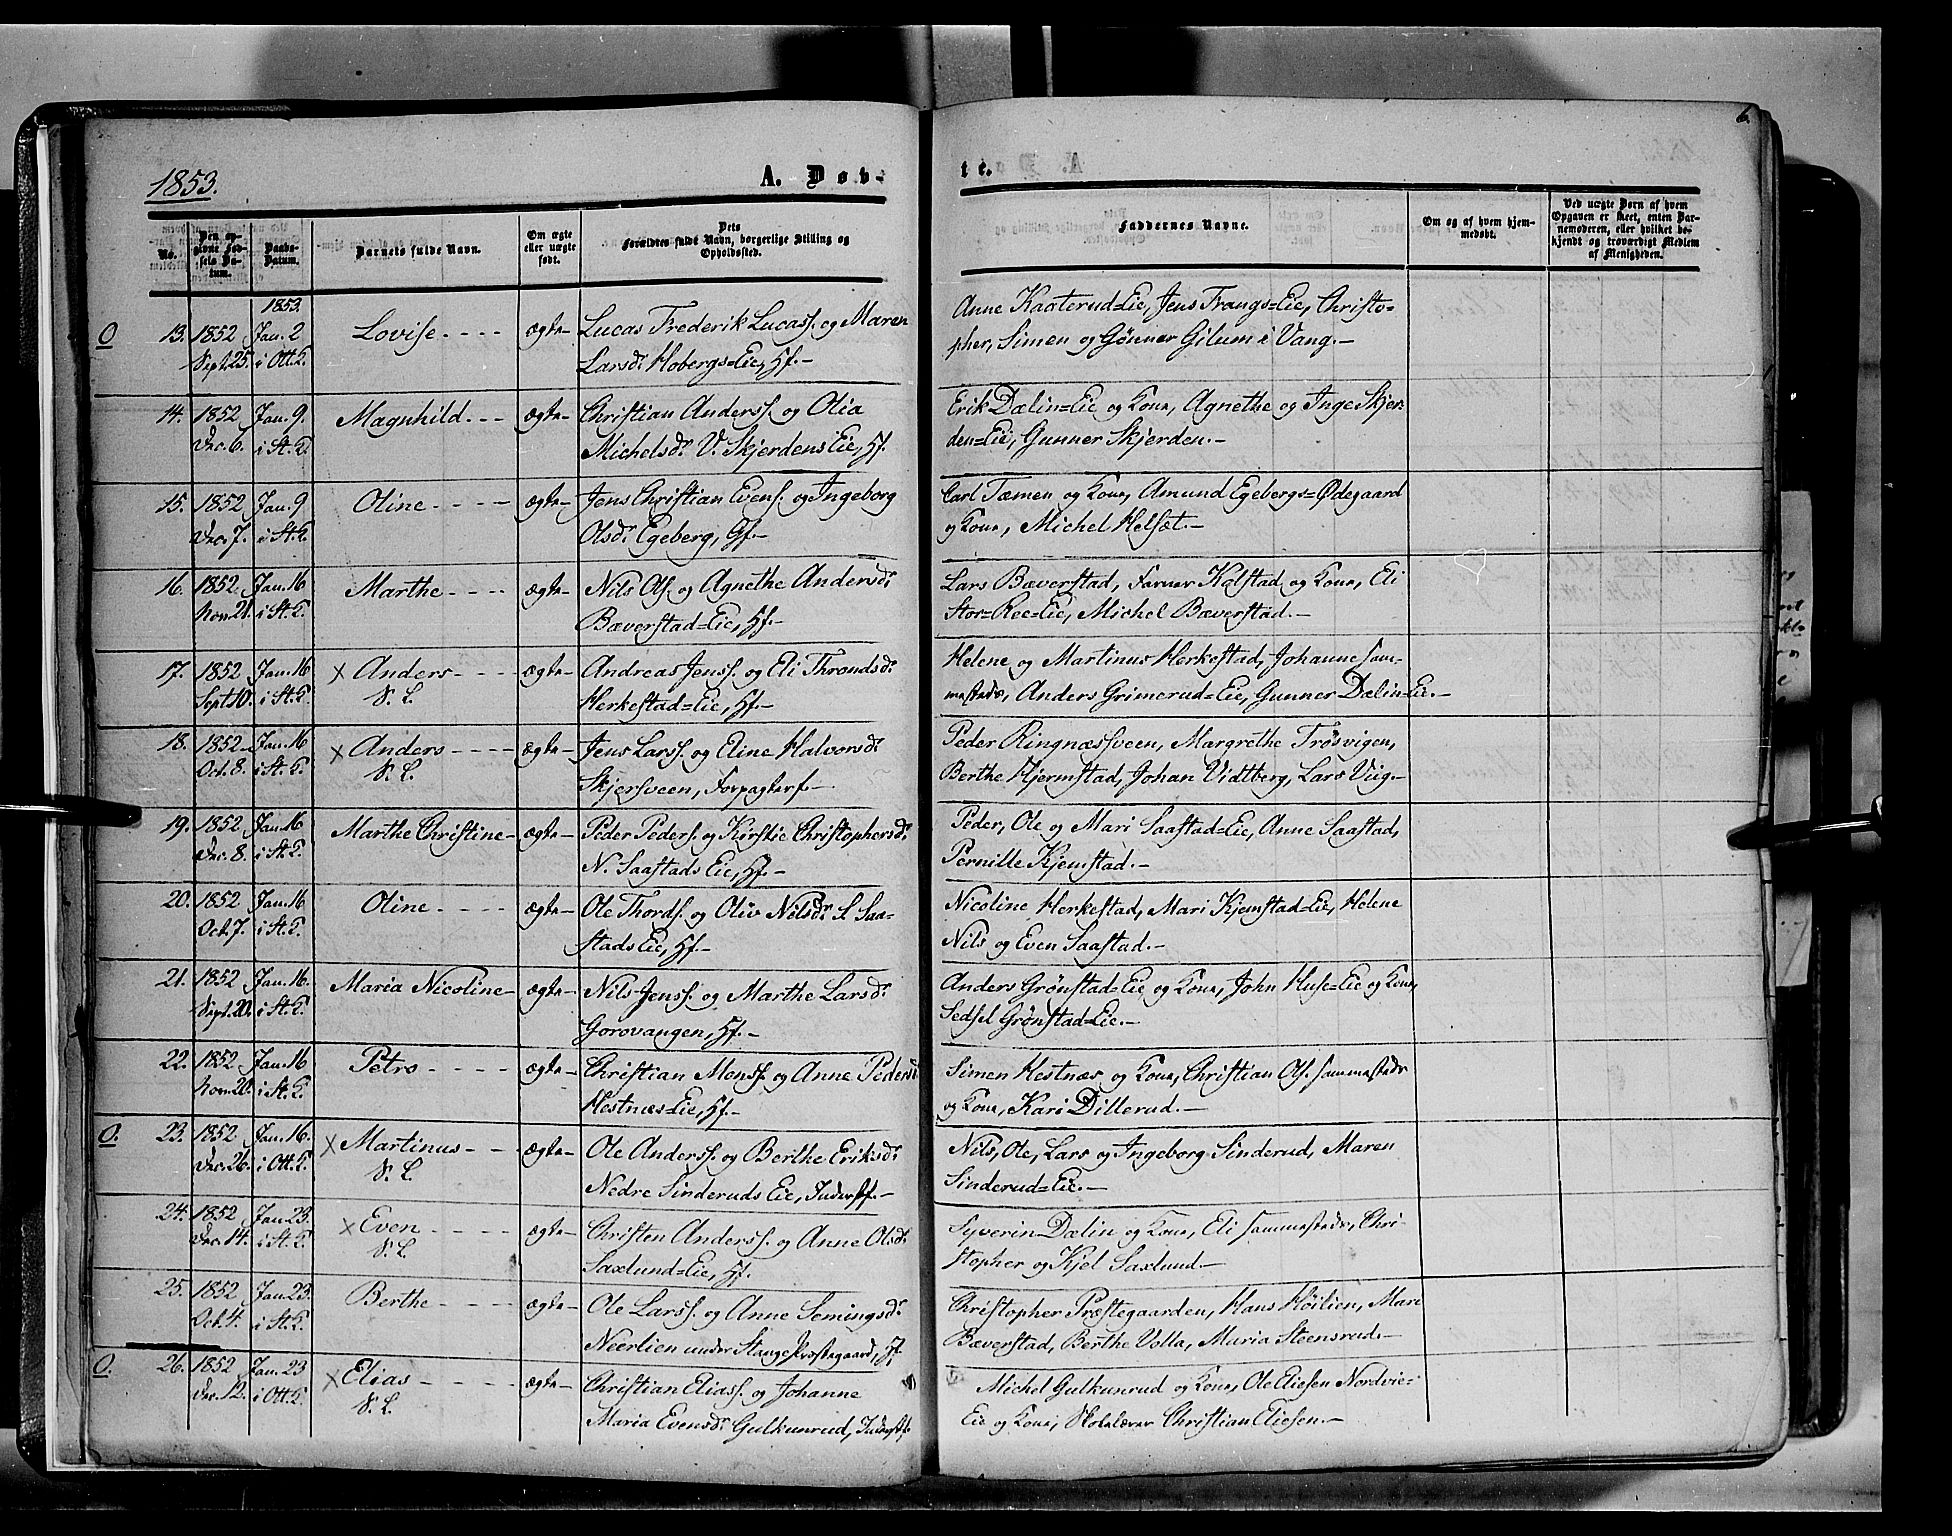 1853.
A. Døb-
No.
Den opgivne Fødsels Datum.
Daabs-Datum.
Barnets fulde Navn.
Om ægte eller uægte født.
Dets Forældres fulde Navn, borgerlige Stilling og Opholdssted.
1853.
O 13. 1852 Jan. 2 Lovise - - - - ægte- Lucas Frederik Lucass. og Maren
Sept. 25. i Ott. K. Larsd. Hobergs=Eie, Hf.-
14. 1852 Jan. 9. Magnhild - - - ægte- Christian Anderss. og Olia
Dec. 6. i St. K. Michelsd. V. Skjerdens Eie, Hf.
15. 1852 Jan. 9 Oline - - - - ægte- Jens Christian Evens. og Ingeborg
Dec. 7. i St. K. Olsd. Egeberg, Gf.-
16. 1852 Jan. 16 Marthe - - - - ægte- Nils Ols. og Agnethe Andersd.
Nov. 21. i St. K. Bæverstad=Eie, Hf.-
17. 1852 Jan. 16 x Anders - - - - ægte- Andreas Jenss. og Eli Throndsd.
Sept. 10. i St. K. S. L. Herkestad=Eie, Hf.-
18. 1852 Jan. 16 x Anders - - - - ægte- Jens Larss. og Eline Halvorsd.
Oct. 8. i St. K. S. L. Skjersveen, Forpagterf.-
19. 1852 Jan. 16 Marthe Christine- ægte- Peder Peders. og Kirstie Christophersd.
Dec. 8. i St. K. N. Saastads Eie, Hf.-
20. 1852 Jan. 16 Oline - - - - ægte- Ole Thords. og Oliv Nilsd. S. Saa-
Oct. 7. i St. K. stads Eie, Hf.-
21. 1852 Jan. 16. Maria Nicoline- ægte- Nils Jenss. og Marthe Larsd.
Sept. 20. i St. K. Gorovangen, Hf.-
22. 1852 Jan. 16 Petro - - - - ægte- Christian Mons. og Anne Pedersd.
Nov. 20. i St. K. Hestnæs=Eie, Hf.-
O. 23. 1852 Jan. 16. x Martinus - - ægte- Ole Anderss. og Berthe Eriksd.
Dec. 26. i Ott. K. S. L. Nedre Sinderuds Eie, Inderstf.-
24. 1852 Jan. 23. x Even - - - - ægte- Christen Anderss. og Anne Olsd.
Dec. 14. i St. K. S. L. Saxlund=Eie, Hf.
25. 1852 Jan. 23. Berthe - - - - ægte- Ole Larss. og Anne Semingsd.
Oct. 4. i St. K. Neerlien under Stange Præstegaard, Hf.
O. 26. 1852 Jan. 23 x Elias - - - - ægte- Christian Eliass. og Johanne
Dec. 12. i Ott. K. S. L. Maria Evensd. Gulkunrud, Inderstf.
6.
te.
Faddernes Navne.
Om og af hvem hjemmedøbt.
Ved uægte Børn af hvem Opgaven er skeet, enten Barnemoderen, eller hvilket bekjendt og troværdigt Medlem af Menigheden.
Anne Kaaterud=Eie, Jens Frangs=Eie, Christo-
pher, Simen og Gønner Gilum i Vang.-
Erik Dælin=Eie og Kone, Agnethe og Inge Skjer-
den=Eie, Gunner Skjerden.-
Carl Tømen og Kone, Amund Egebergs=Ødegaard
og Kone, Michel Helset.-
Lars Bæverstad, Farver Kalstad og Kone, Eli
Stor=Ree=Eie, Michel Bæverstad.-
Helene og Martinus Herkestad, Johanne sam-
mesteds, Anders Grimerud=Eie, Gunner Dælin=Eie.-
Peder Ringnæssveen, Margrethe Trøsvigen,
Berthe Hjermstad, Johan Vidtberg, Lars Viig.-
Peder, Ole og Mari Saastad=Eie, Anne Saastad,
Pernille Kjemstad.-
Nicoline Herkestad, Mari Kjemstad=Eie, Helene
Nils og Even Saastad.-
Anders Grønstad=Eie og Kone, John Huse=Eie og Kone,
Sedsel Grønstad=Eie.-
Simen Hestnæs og Kone, Christian Ols. sammesteds
og Kone, Kari Dillerud.-
Nils, Ole, Lars og Ingeborg Sinderud, Maren
Sinderud=Eie.-
Syverin Dælin og Kone, Eli sammesteds, Chri-
stopher og Kjel Saxlund.-
Christopher Præstegaarden, Hans Høilien, Mari
Bæverstad, Berthe Volla, Maria Steensrud.-
Michel Gulkunrud og Kone, Ole Eliesen Nordvie=
Eie og Kone, Skolelærer Christian Eliesen.-